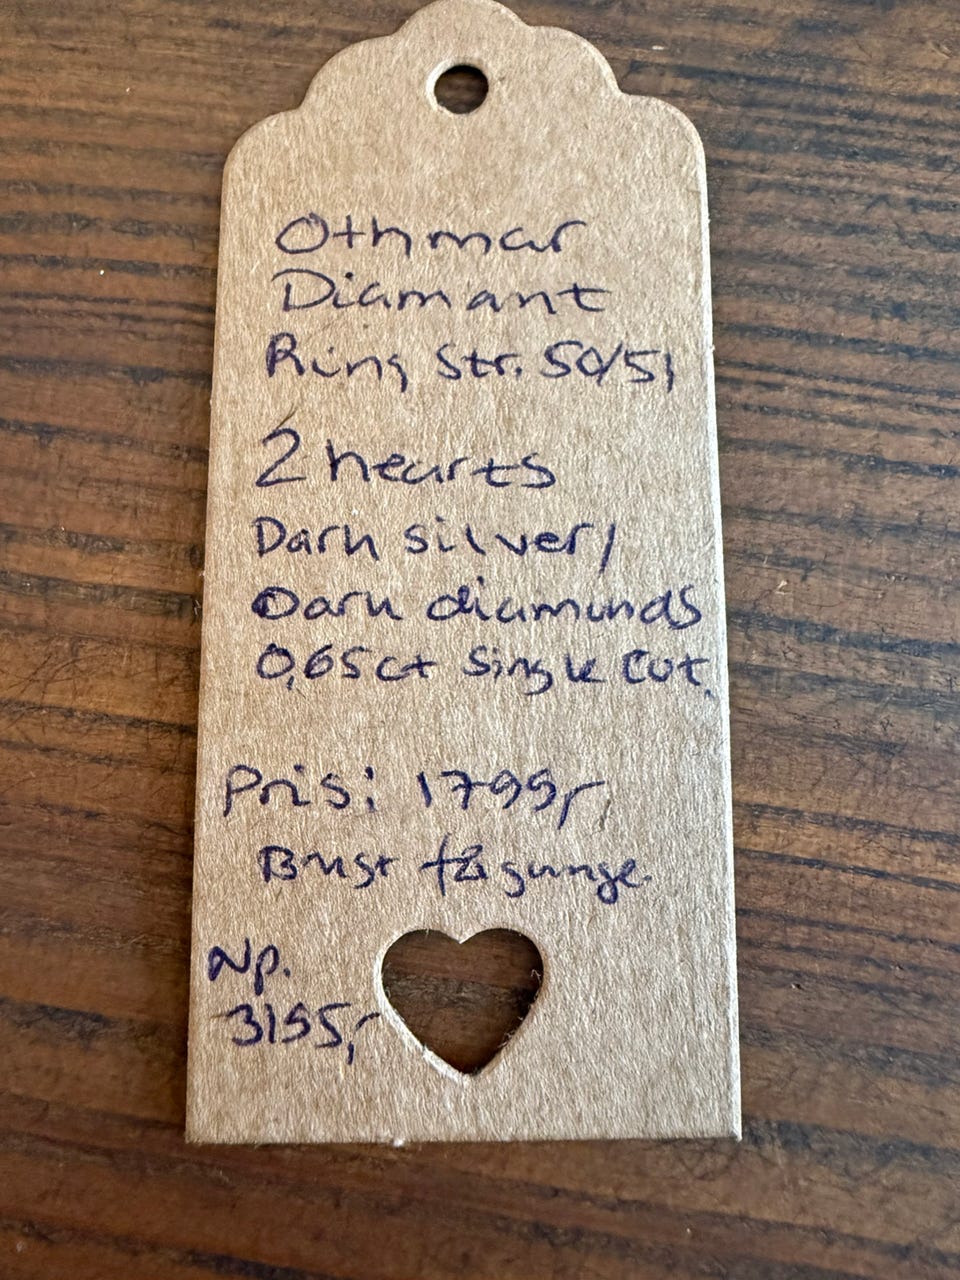 Othmar
Diamant
Ring Str. 50/51
2 hearts
Dark silver/
Dark diamonds
0,65ct Single Cut.
Pris: 1799,-
Brugt få gange.
Np.
3195,-